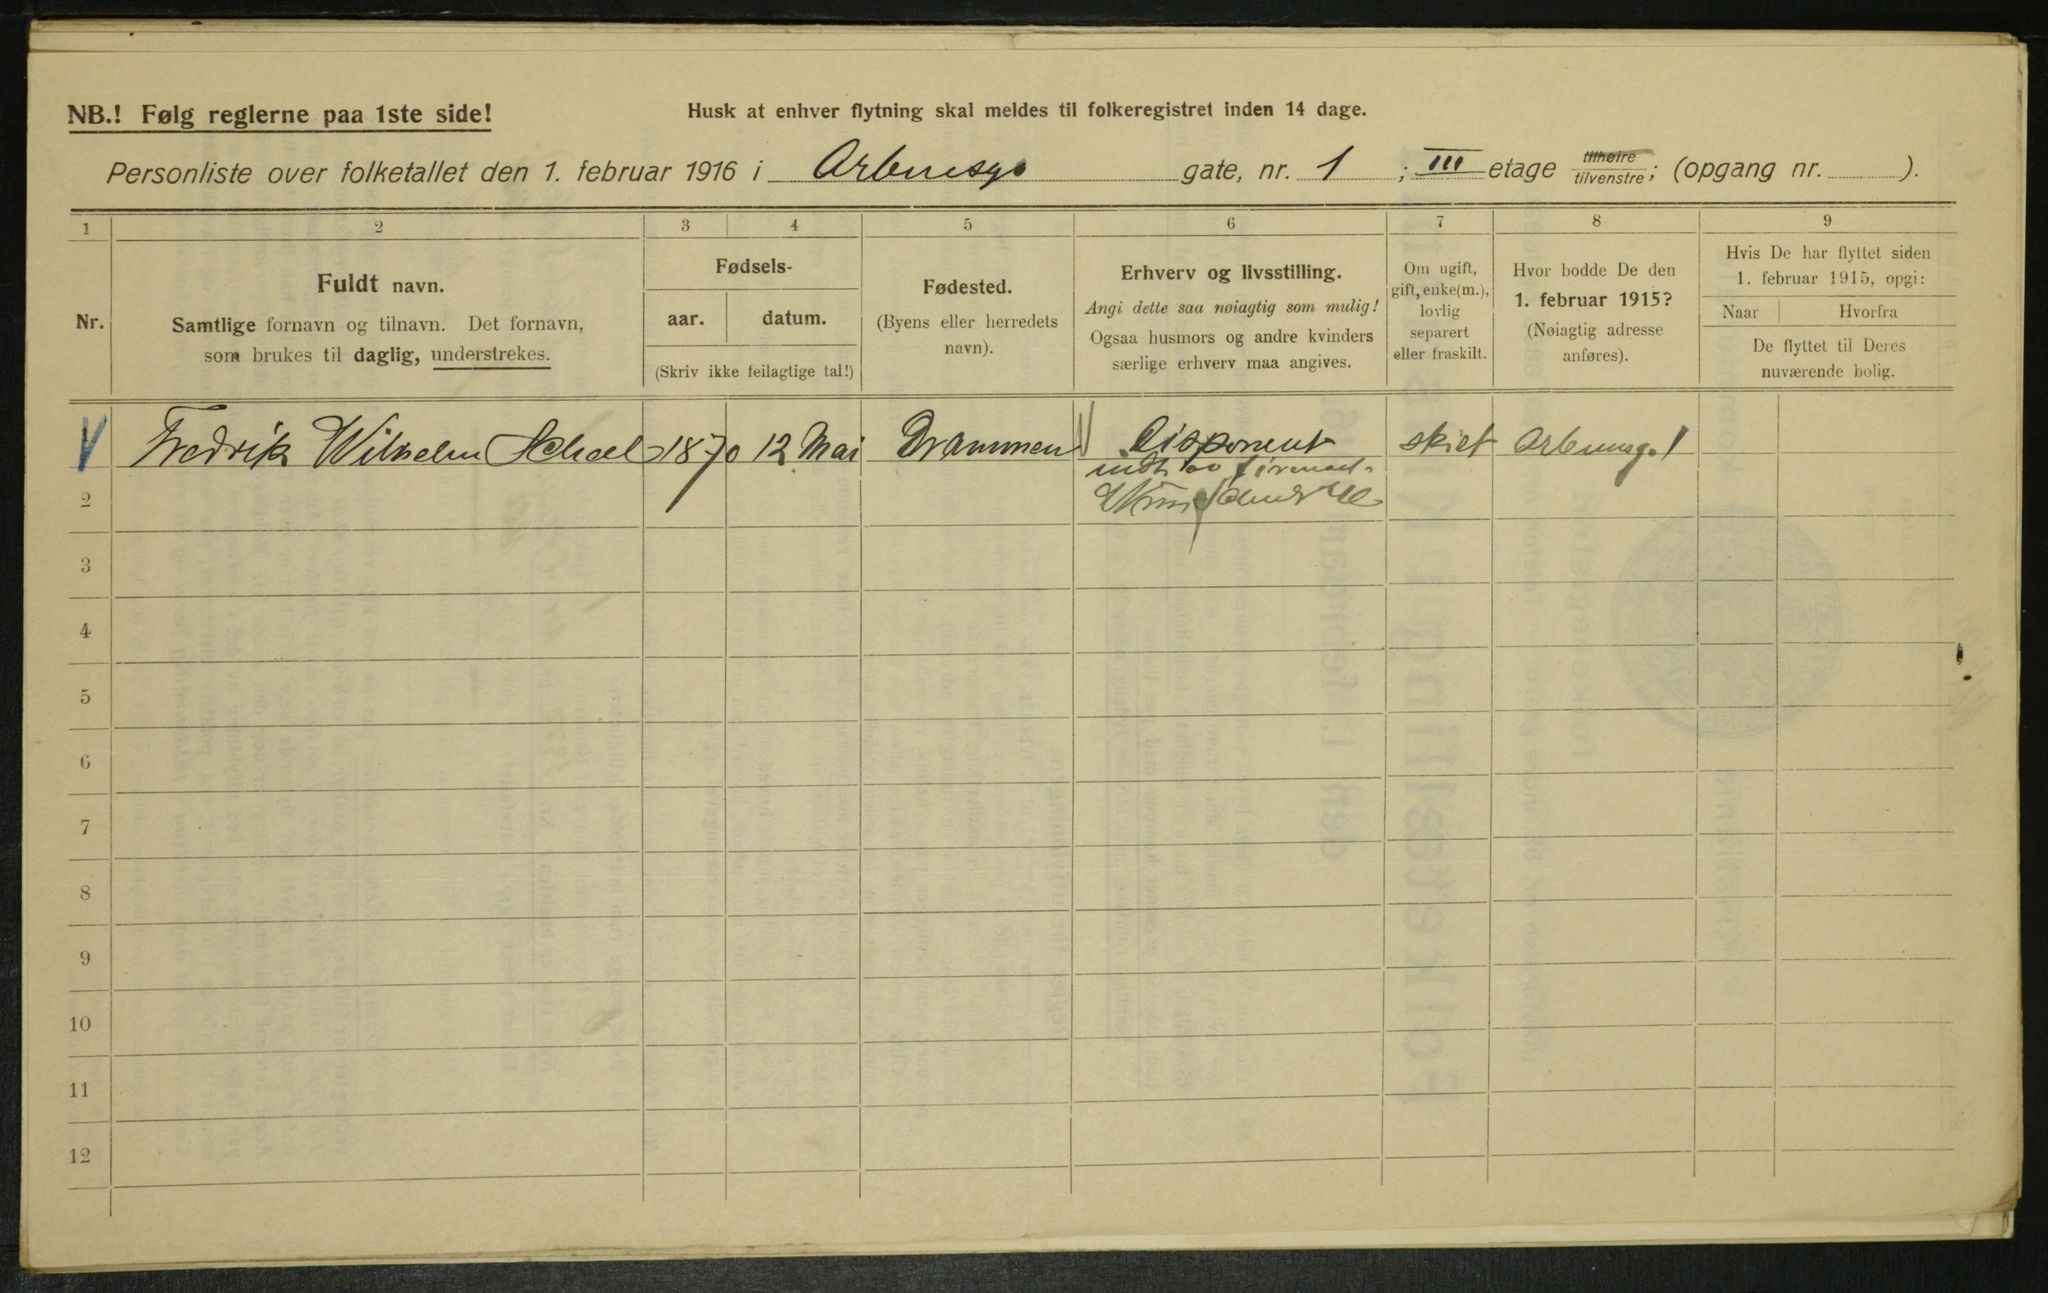 NB.! Følg reglerne paa 1ste side!
Husk at enhver flytning skal meldes til folkeregistret inden 14 dage.
Personliste over folketallet den 1. februar 1916 i Arbiensgt gate, nr. 1 ; III etage tilhøire tilvenstre; (opgang nr. ).
1 2 3 4 5 6 7 8 9
Nr.
Fuldt navn.
Samtlige fornavn og tilnavn. Det fornavn,
som brukes til daglig, understrekes.
Fødsels-
aar. datum.
(Skriv ikke feilagtige tal!)
Fødested.
(Byens eller herredets
navn).
Erhverv og livsstilling.
Angi dette saa nøiagtig som mulig!
Ogsaa husmors og andre kvinders
særlige erhverv maa angives.
Om ugift,
gift, enke(m.),
lovlig
separert
eller fraskilt.
Hvor bodde De den
1. februar 1915?
(Nøiagtig adresse
anføres).
Hvis De har flyttet siden
1. februar 1915, opgi:
Naar Hvorfra
De flyttet til Deres
nuværende bolig.
Fredrik Wilhelm Scheel 1870 12 Mai Drammen Disponent skilt Arbiensg. 1
indh av firmaet
2
3
4
5
6
7
8
9
10
11
12